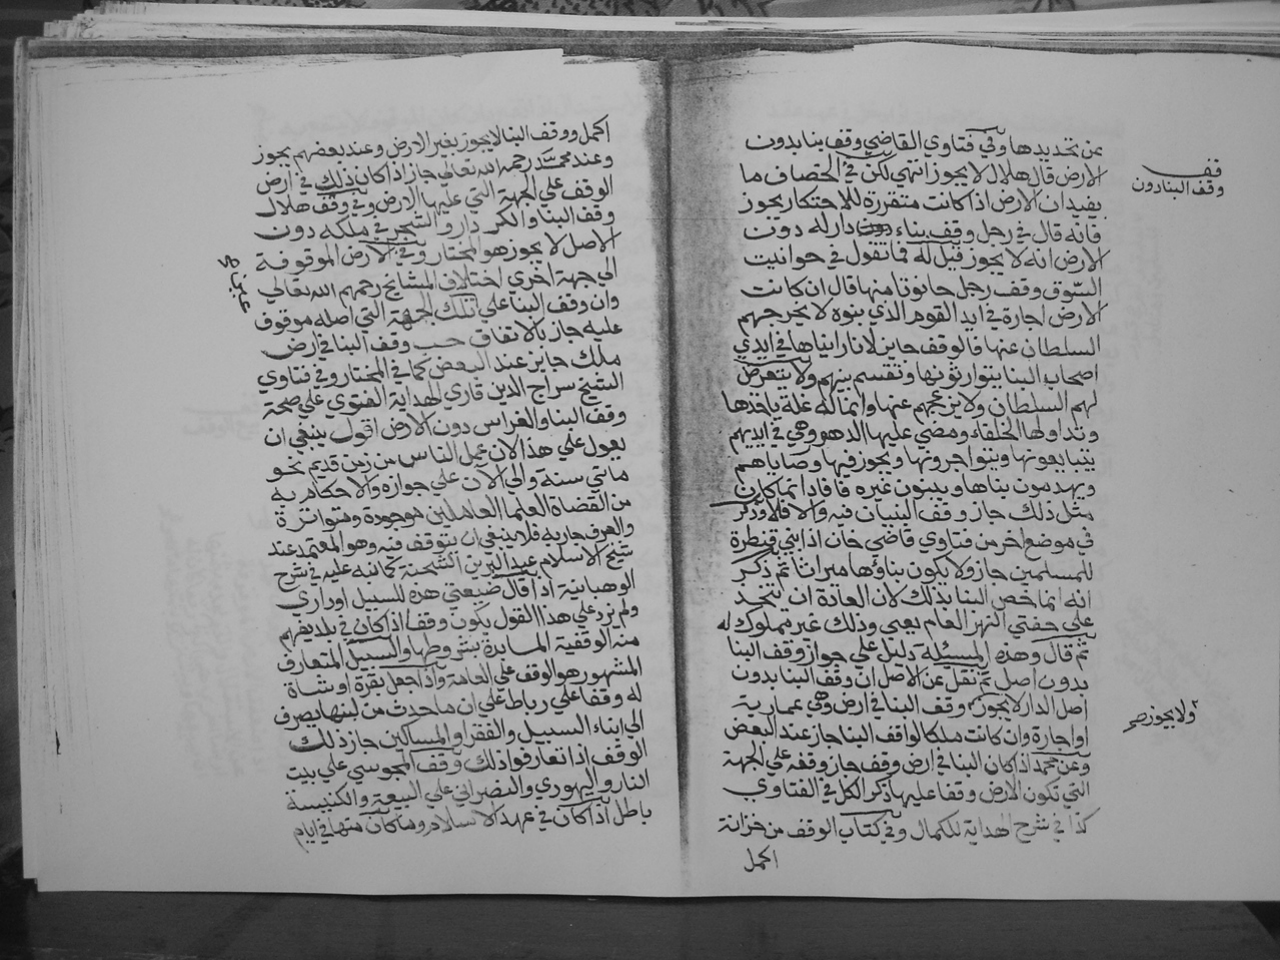 عن تحديدها وفي فتاوي القاضي وقف بنا بدون
الارض قال هلال لا يجوز انتهي لكن في الخصاف ما
يفيد ان الارض اذا كانت متقررة للاحتكار يجوز
فانه قال في رجل وقف بناء دار له دون
الارض انه لا يجوز قيل له فما تقول في حوانيت
السوق وقف رجل حانوتا منها قال ان كانت
الارض اجارة في ايد القوم الذي بنوه لا يخرجهم
السلطان عنها فالوقف جايز لانا رايناها في ايدي
اصحاب البنا يتوارثونها وتقسم بينهم ولا يتعرض
لهم السلطان ولا يزعجهم عنها وانما له غلة ياخذها
وتداولها الخلفاء ومضي عليها الدهور وهي في ايديهم
يتبايعونها ويتواجرونها ويجوز فيها وصاياهم
ويهدمون بناها ويبنون غيره فافاد انما كان
مثل ذلك جاز وقف البنيان فيه والا فلا وذكر
في موضع اخر من فتاوي قاضي خان اذا بني قنطرة
للمسلمين جاز ولا يكون بناؤها ميراثا ثم ذكر
انه انما خص البنا بذلك لان العادة ان يتخذ
علي حفتي النهر العام يعني وذلك غير مملوك له
ثم قال وهذه المسئلة دليل علي جواز وقف البنا
بدون اصل ثم نقل عن الاصل ان وقف البنا بدون
اصل الدار لا يجوز وقف البنا في ارض وهي عمارية
او اجارة وان كانت ملكا لواقف البنا جاز عند البعض
وعن محمد اذا كان البنا في ارض وقف جاز وقفه علي الجهة
التي تكون الارض وقفا عليها ذكر الكل في الفتاوي
كذا في شرح الهداية للكمال وفي كتاب الوقف من خزانة
اكمل
قف
وقف البنا دون
ولا يجوز صح
اكمل ووقف البنا لا يجوز بغير الارض وعند بعضهم يجوز
وعند محمد رحمه الله تعالي جاز اذا كان ذلك في ارض
الوقف علي الجهة التي عليها الارض وفي وقف هلال
وقف البنا والكردار والشجر في ملكه دون
الاصل لا يجوز هو المختار وفي الارض الموقوفة
الي جهة اخري اختلاف المشايخ رحمهم الله تعالي
وان وقف البنا علي تلك الجهة التي اصله موقوف
عليه جاز بالاتفاق حب وقف البنا في ارض
ملك جايز عند البعض كما في المختار وفي فتاوي
الشيخ سراج الدين قاري الهداية الفتوي علي صحة
وقف البنا والغراس دون الارض اقول ينبغي ان
يعول علي هذا لان عمل الناس من زمن قديم نحو
مايتي سنة والي الآن علي جوازه والاحكام به
من القضاة العلما العاملين موجودة ومتواترة
والعرف جار به فلا ينبغي ان يتوقف فيه وهو المعتمد عند
شيخ الاسلام عبد البر بن الشحنة كما نبه عليه في شرح
الوهبانية اذا قال ضيعتي هذه للسبيل او داري
ولم يزد علي هذا القول يكون وقفا اذ كان في بلد يفهم
منه الوقفية المابدة بشروطها والسبيل المتعارف
المشهور هو الوقف علي العامة واذا جعل بقرة او شاة
له وقفا علي رباط علي ان ما حدث من لبنها يصرف
الي ابناء السبيل والفقرا والمساكين جاز ذلك
الوقف اذا تعارفوا ذلك وقف المجوسي علي بيت
النار واليهودي والنصراني علي البيعة والكنيسة
باطل اذا كان في عهد الاسلام وما كان منها في ايام